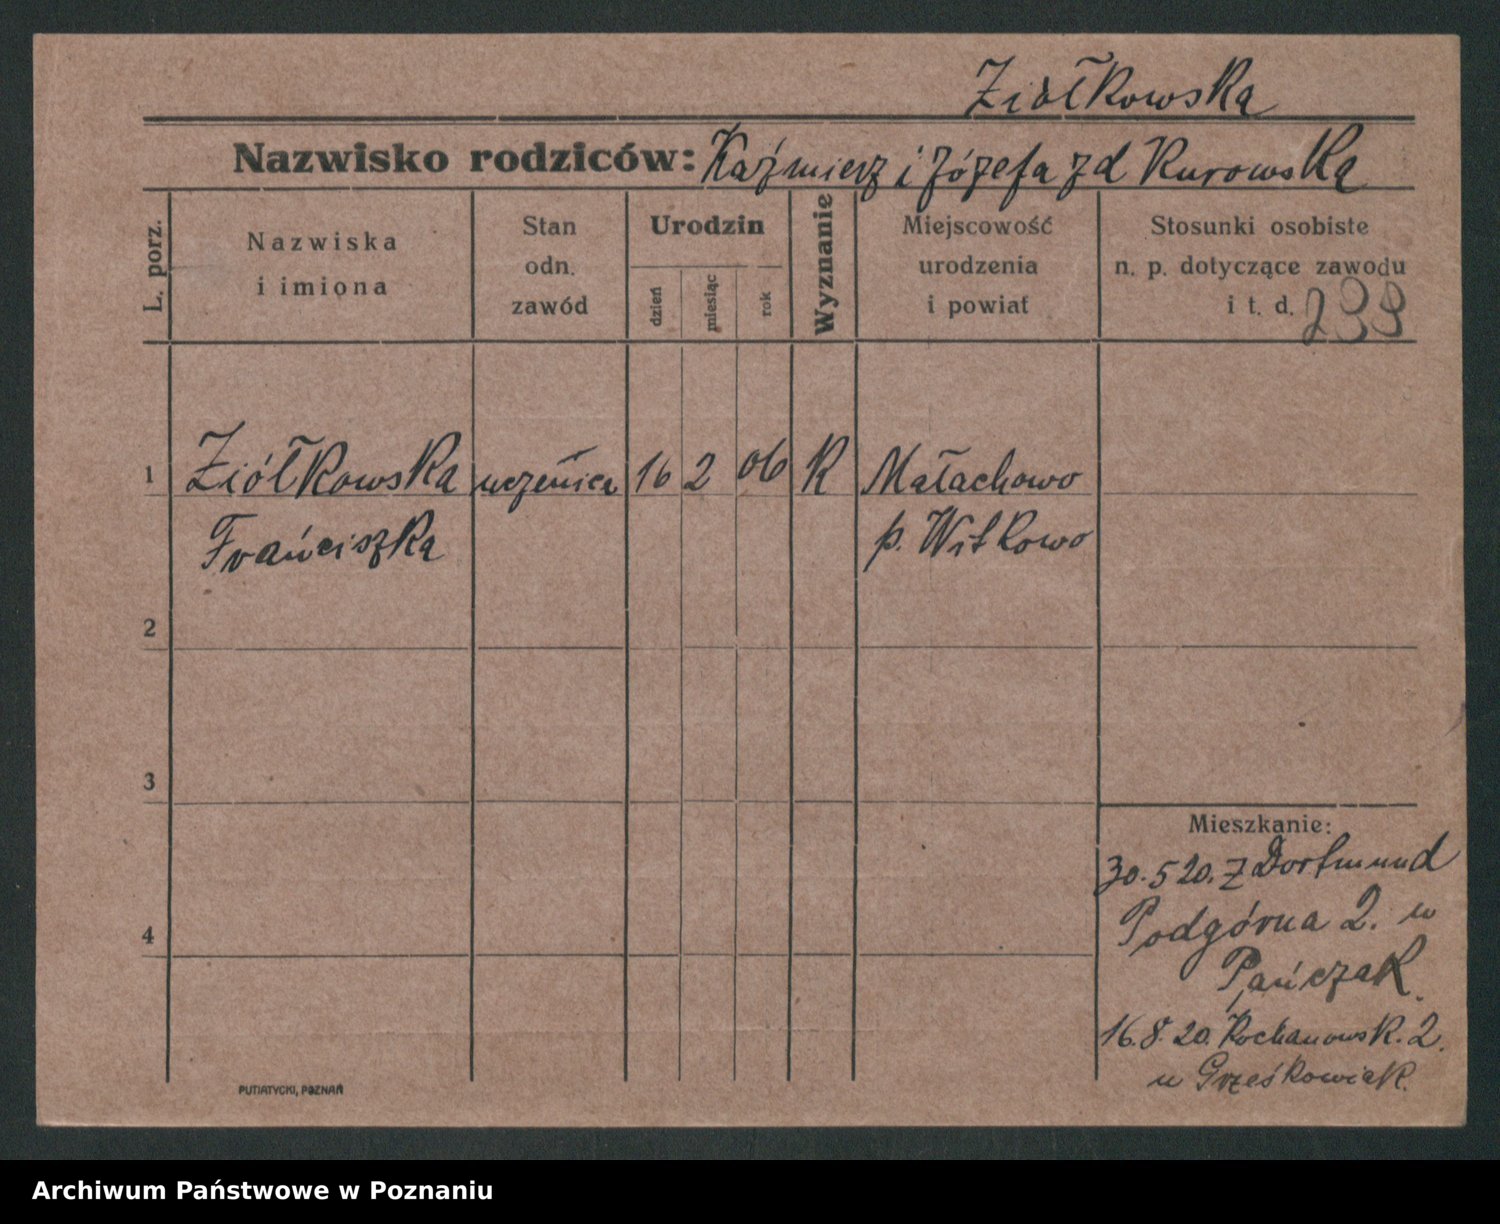 Ziółkowska
Nazwisko rodziców: Kaźmierz i Józefa zd Kurowska
L. porz.
Nazwiska
i imiona
Stan
odn.
zawód
Urodzin
dzień
miesiąc
rok
Wyznanie
Miejscowość
urodzenia
i powiat
Stosunki osobiste
n. p. dotyczące zawodu
i t. d.
239
1 Ziółkowska uczenica 16 2 06 K Małachowo
Frańciszka p. Witkowo
2
3
Mieszkanie:
30.5 20. z Dortmund
Podgórna 2. u
4
Pańczak.
16.8.20. Kochanowsk. 2.
u Grześkowiak.
PUTIATYCKI, POZNAŃ
Archiwum Państwowe w Poznaniu